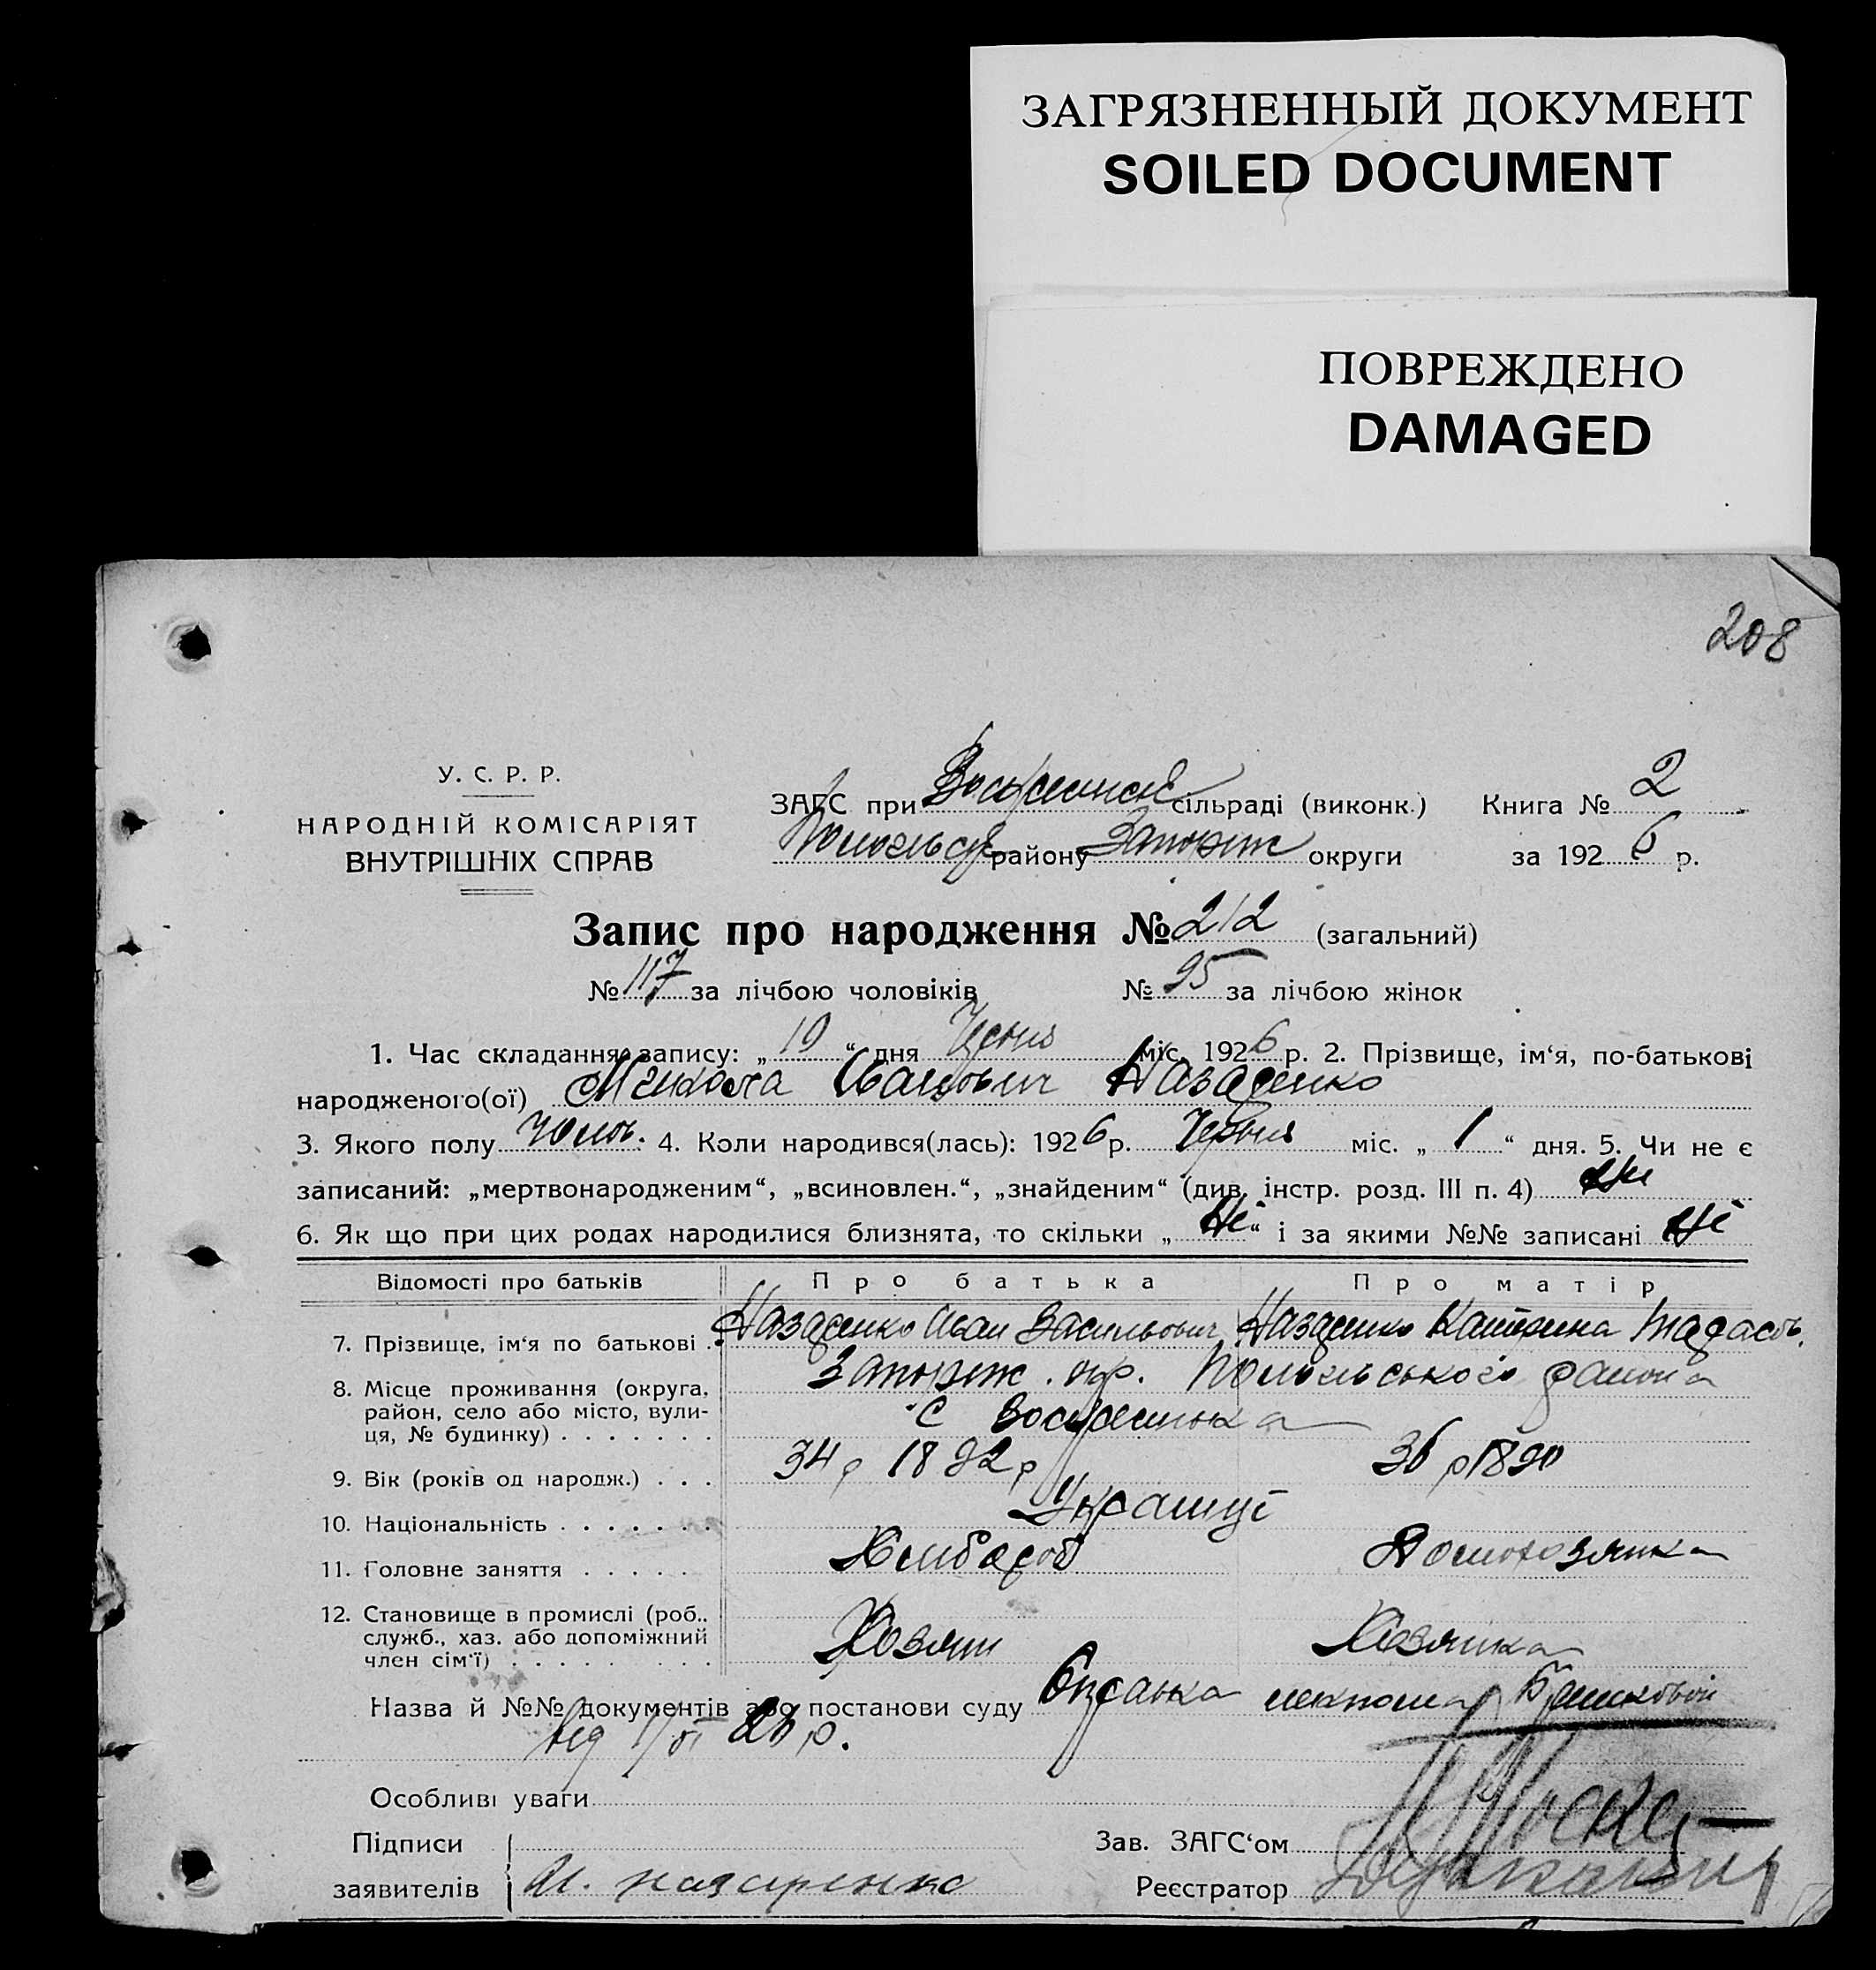 ЗАГРЯЗНЕННЫЙ ДОКУМЕНТ
SOILED DOCUMENT
ПОВРЕЖДЕНО
DAMAGED
208
У. С. Р. Р.
НАРОДНІЙ КОМІСАРІЯТ
ВНУТРІШНІХ СПРАВ
ЗАГС при сільраді (виконк.) Книга № 2
району Запоріж округи за 1926 р.
Запис про народження № 212 (загальний)
№ 117 за лічбою чоловіків № 95 за лічбою жінок
1. Час складання запису: „ 19 “ дня Червня міс. 1926 р. 2. Прізвище, ім‘я, по-батькові
народженого(ої) Микола Іванович Назаренко
3. Якого полу Чолов. 4. Коли народився(лась): 1926 р. Червня міс. „ 1 “ дня. 5. Чи не є
записаний: „мертвонародженим“, „всиновлен.“, „знайденим“ (див. інстр. розд. III п. 4) Ні
6. Як що при цих родах народилися близнята, то скільки „ Ні “ і за якими №№ записані Ні
Відомості про батьків Про батька Про матір
7. Прізвище, ім‘я по батькові . Назаренко Іван Васильович Назаренко Катерина Тарасов.
8. Місце проживання (округа, Запоріж. окр. района
район, село або місто, вули- с Воскресенка
ця, № будинку) . . . . . . .
9. Вік (років од народж.) . . . 34 р 1892 р 36 р 1890
10. Національність . . . . . . . Українці
11. Головне заняття . . . . . Хлібороб Домохозяика
12. Становище в промислі (роб.,
служб., хаз. або допоміжний Хозяин Хозяика
член сім‘ї) . . . . . . . . .
Назва й №№ документів або постанови суду
від 1/VI 26 р.
Особливі уваги
Підписи Зав. ЗАГС‘ом
заявителів И. Назаренко Реєстратор